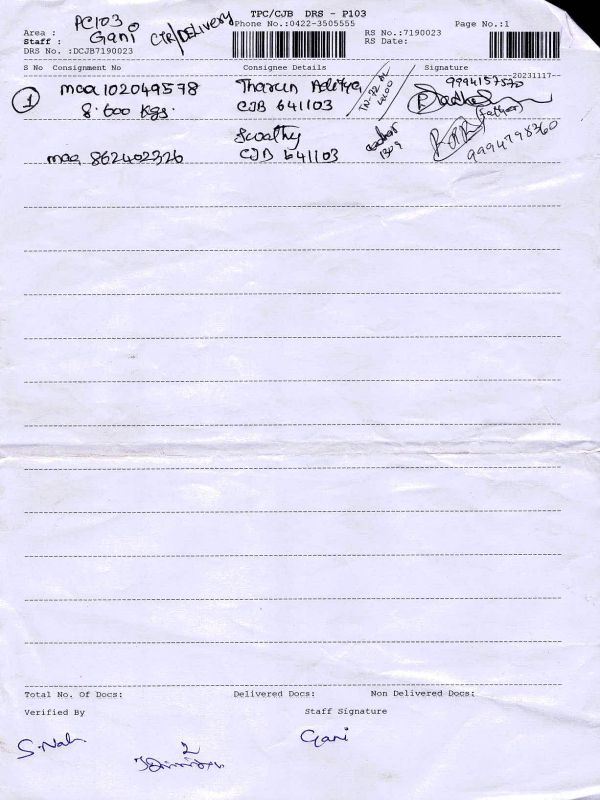 TPC/CJB DRS - P103
Phone No.:0422-3505555 Page No.:1
Area : PC103
Staff : Gani CTR/DELIVERY
RS No.:7190023
RS Date:
DRS No. :DCJB7190023
S No Consignment No Consignee Details Signature
20231117--
1 maa 102049578 Tharun Aditya 9994157570
8.600 Kgs. CJB 641103 (Father)
Swathy
maa 862402326 CJB 641103 1309 9994798360
Total No. Of Docs: Delivered Docs: Non Delivered Docs:
Verified By Staff Signature
Gani